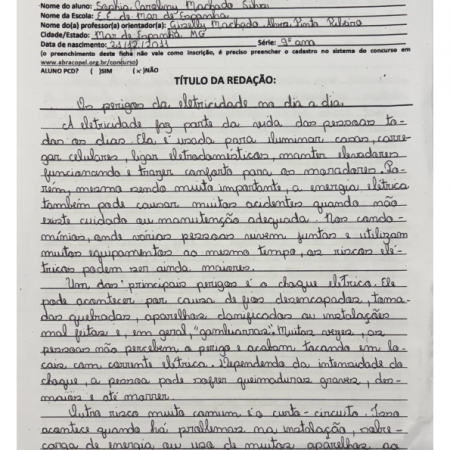 Nome do aluno: Sophia Caroliny Machado Silva
Nome da Escola: E.E. de Mar de Espanha
Nome do(a) professor(a) orientador(a): Gizelly Machado Abra Pinto Ribeiro
Cidade/Estado: Mar de Espanha, MG
Data de nascimento: 21/12/2011 Série: 9º ano
(o preenchimento desta ficha não vale como inscrição, é preciso preencher o cadastro no sistema do concurso em
www.abracopel.org.br/concurso)
ALUNO PCD? ( )SIM (x)NÃO
TÍTULO DA REDAÇÃO:
Os perigos da eletricidade no dia a dia.
A eletricidade faz parte da vida das pessoas to-
dos os dias. Ela é usada para iluminar casas, carre-
gar celulares, ligar eletrodomésticos, manter elevadores
funcionando e trazer conforto para os moradores. Po-
rém, mesmo sendo muito importante, a energia elétrica
também pode causar muitos acidentes quando não
existe cuidado ou manutenção adequada. Nos condo-
mínios, onde várias pessoas vivem juntas e utilizam
muitos equipamentos ao mesmo tempo, os riscos elé-
tricos podem ser ainda maiores.
Um dos principais perigos é o choque elétrico. Ele
pode acontecer por causa de fios desencapados, toma-
das quebradas, aparelhos danificados ou instalações
mal feitas e, em geral, "gambiarras". Muitas vezes, as
pessoas não percebem o perigo e acabam tocando em lo-
cais com corrente elétrica. Dependendo da intensidade do
choque, a pessoa pode sofrer queimaduras graves, des-
maios e até morrer.
Outro risco muito comum é o curto-circuito. Isso
acontece quando há problemas na instalação, sobre-
carga de energia ou uso de muitos aparelhos ao